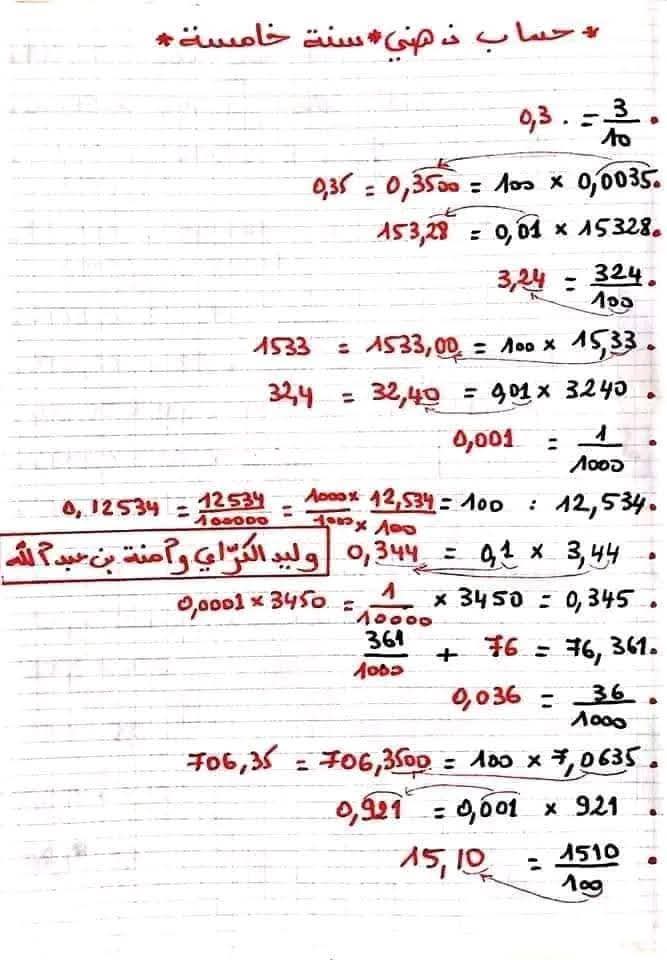 * حساب ذهني * سنة خامسة *
0,3 . = 3/10 .
0,35 = 0,3500 = 100 × 0,0035.
153,28 = 0,01 × 15328.
3,24 = 324/100 .
1533 = 1533,00 = 100 × 15,33 .
32,4 = 32,40 = 0,01 × 3240 .
0,001 = 1/1000 .
0,12534 = 12534/100000 = 1000 × 12,534/1000 × 100 = 100 : 12,534.
وليد الكرّاي وآمنة بن عبد الله 0,344 = 0,1 × 3,44 .
0,0001 × 3450 = 1/10000 × 3450 = 0,345 .
361/1000 + 76 = 76,361.
0,036 = 36/1000 .
706,35 = 706,3500 = 100 × 7,0635.
0,921 = 0,001 × 921 .
15,10 = 1510/100 .